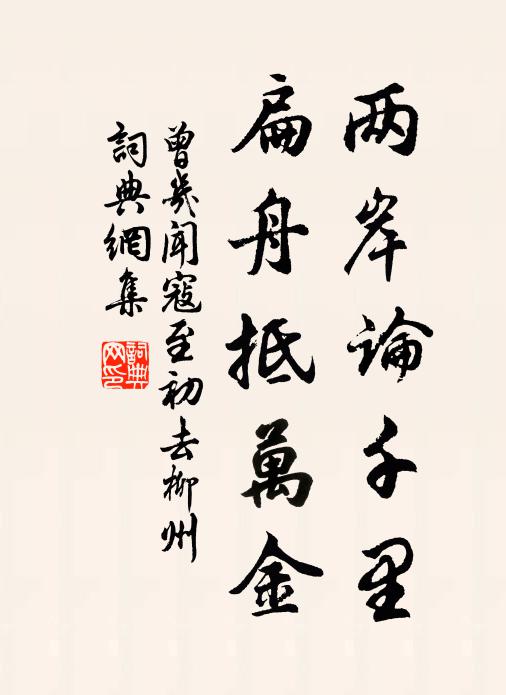 两岸论千里
扁舟抵萬金
曾幾闻寇至初去柳州
詞典網集
詞典
网印